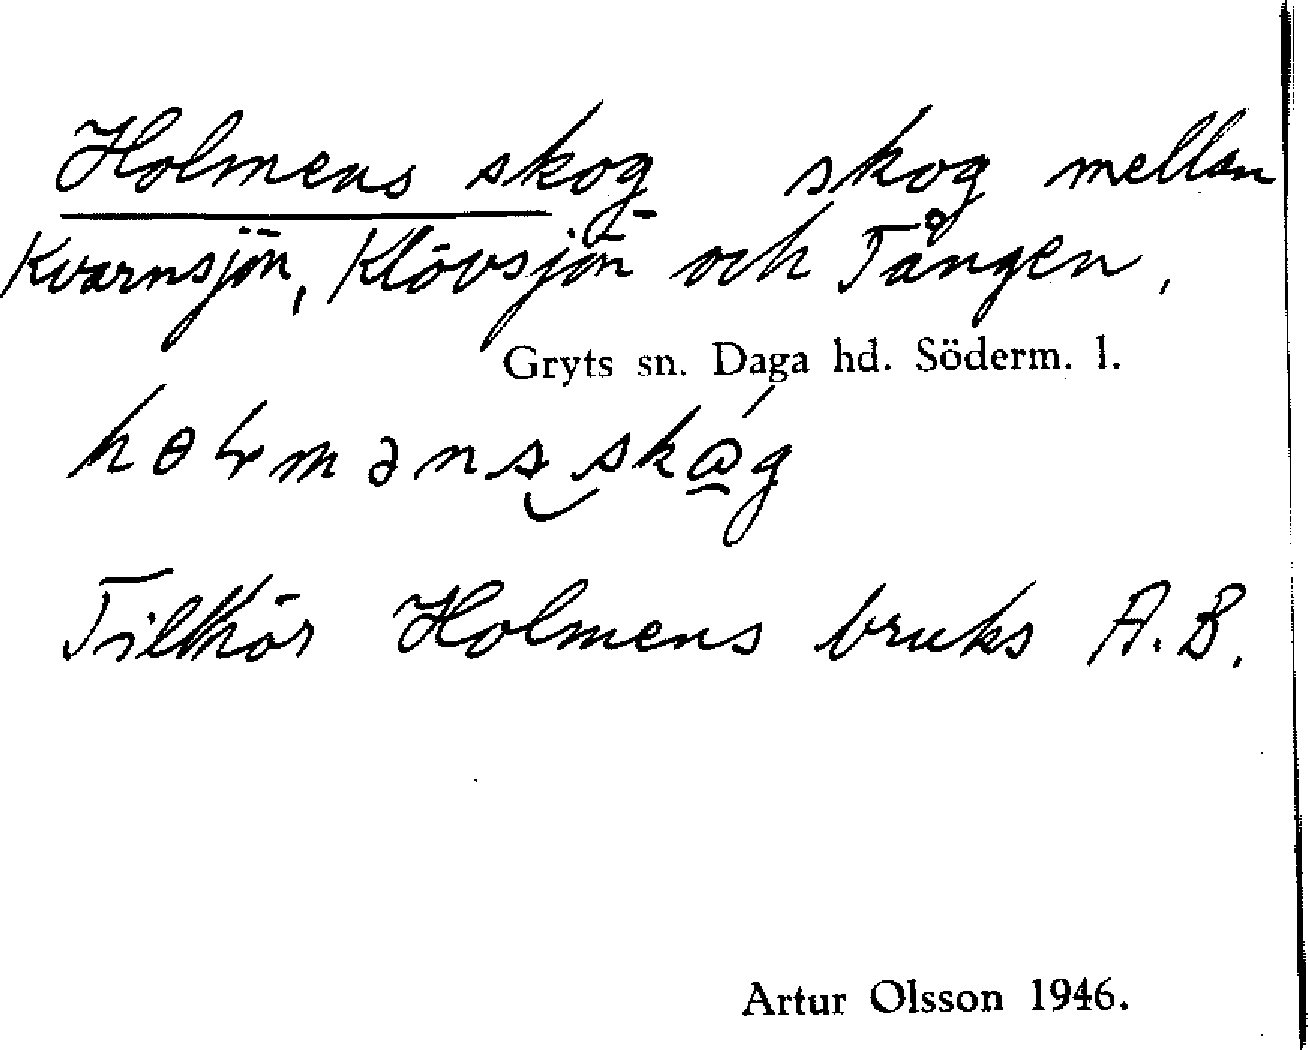 Holmens skog skog mellan
Kvarnsjön, Klövsjön och Tången,
Gryts sn. Daga hd. Söderm. l.
Tillhör Holmens bruks A.B.
Artur Olsson 1946.